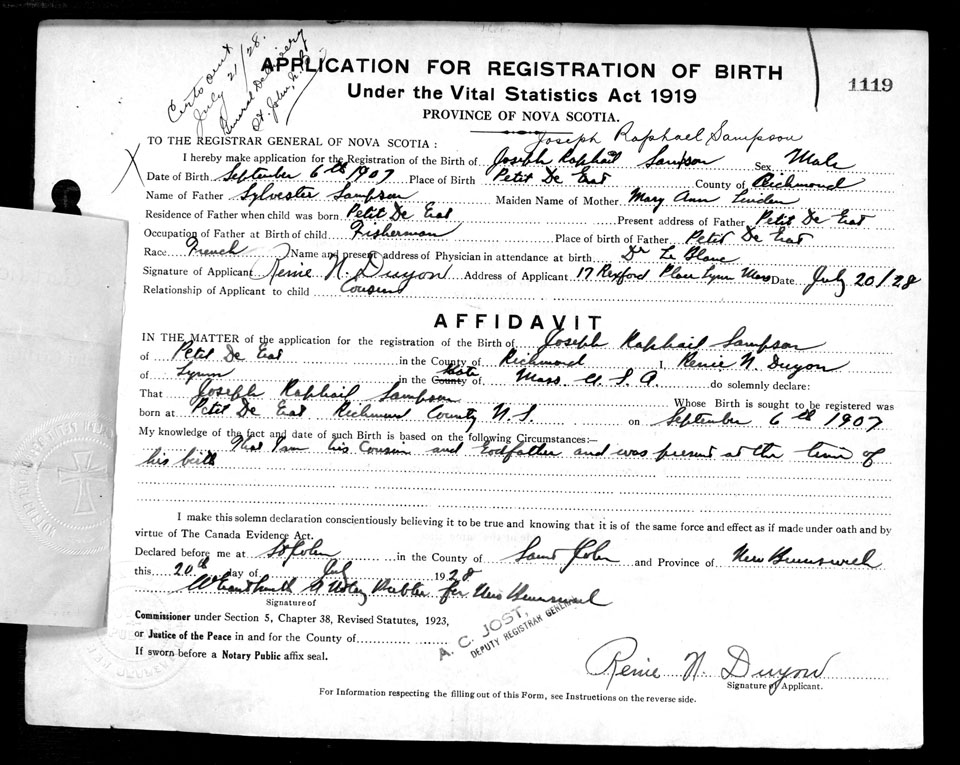 Certs out
July 21/28.
General Delivery
St. John, N.B.
APPLICATION FOR REGISTRATION OF BIRTH
1119
Under the Vital Statistics Act 1919
PROVINCE OF NOVA SCOTIA.
Joseph Raphael Sampson
TO THE REGISTRAR GENERAL OF NOVA SCOTIA:
I hereby make application for the Registration of the Birth of Joseph Raphail Sampson Sex Male
Date of Birth September 6th 1907 Place of Birth Petit De Grat County of Richmond
Name of Father Sylvester Sampson Maiden Name of Mother Mary Ann Linden
Residence of Father when child was born Petit De Grat Present address of Father Petit De Grat
Occupation of Father at Birth of child Fisherman Place of birth of Father Petit De Grat
Race French Name and present address of Physician in attendance at birth Dr Le Blanc
Signature of Applicant Renie N. Duyon Address of Applicant 17 Rexford Place Lynn Mass Date July 20/28
Relationship of Applicant to child Cousin
AFFIDAVIT
IN THE MATTER of the application for the registration of the Birth of Joseph Raphail Sampson
of Petit De Grat in the County of Richmond I, Renie N. Duyon
of Lynn in the County State of Mass U.S.A. do solemnly declare:
That Joseph Raphail Sampson Whose Birth is sought to be registered was
born at Petit De Grat Richmond County N.S. on September 6th 1907
My knowledge of the fact and date of such Birth is based on the following Circumstances:—
That I am his Cousin and Godfather and was present at the time of
his birth
I make this solemn declaration conscientiously believing it to be true and knowing that it is of the same force and effect as if made under oath and by
virtue of The Canada Evidence Act.
Declared before me at St John in the County of Saint John and Province of New Brunswick
this 20th day of July 1928
A Notary Public for New Brunswick
Signature of
Commissioner under Section 5, Chapter 38, Revised Statutes, 1923,
or Justice of the Peace in and for the County of
If sworn before a Notary Public affix seal.
A. C. JOST,
DEPUTY REGISTRAR GENERAL
Renie N. Duyon
Signature of Applicant.
For Information respecting the filling out of this Form, see Instructions on the reverse side.